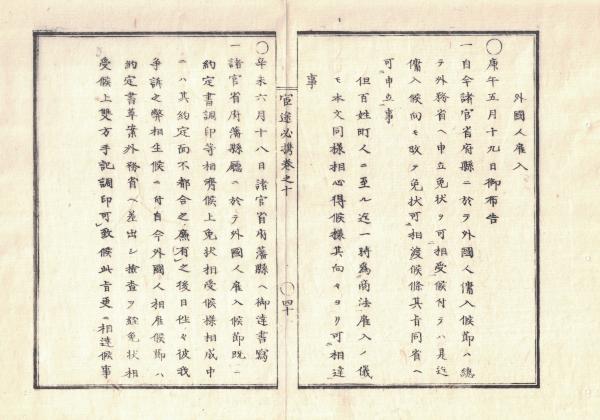 外國人雇入
〇庚午五月十九日御布告
一自今諸官省府縣ニ於テ外國人傭入候節ハ總
テ外務省ヘ申立免狀ヲ可相受候付テハ是迄
傭入候向モ改テ免狀可相渡候條其旨同省ヘ
可申立事
但百姓町人ニ至ル迄一時為商法雇入ノ儀
モ本文同樣相心得候樣其向々ヨリ可相達
事
宦途必携巻之十
〇四十
〇辛未六月十八日諸官省府藩縣ヘ御達書寫
一諸官省府藩縣廳ニ於テ外國人雇入候節既ニ
約定書調印等相濟候上免狀相受候樣相成中
ニハ其約定面不都合之廉有之後日往々彼我
爭訴之弊相生候ニ付自今外國人相雇候節ハ
約定書草案外務省ヘ差出シ檢査ヲ經免狀相
受候上雙方手記調印可致候此旨更ニ相達候事